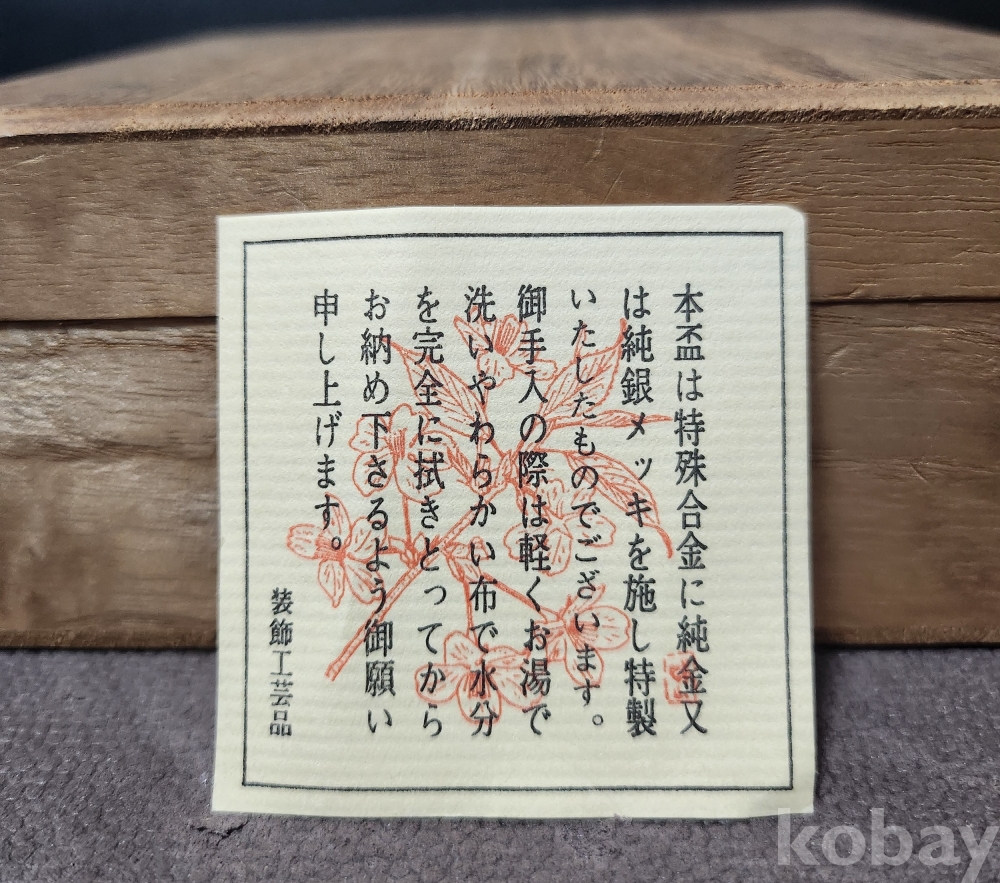 本盃は特殊合金に純金又
は純銀メッキを施し特製
いたしたものでございます。
御手入の際は軽くお湯で
洗いやわらかい布で水分
を完全に拭きとってから
お納め下さるよう御願い
申し上げます。
装飾工芸品
kobay